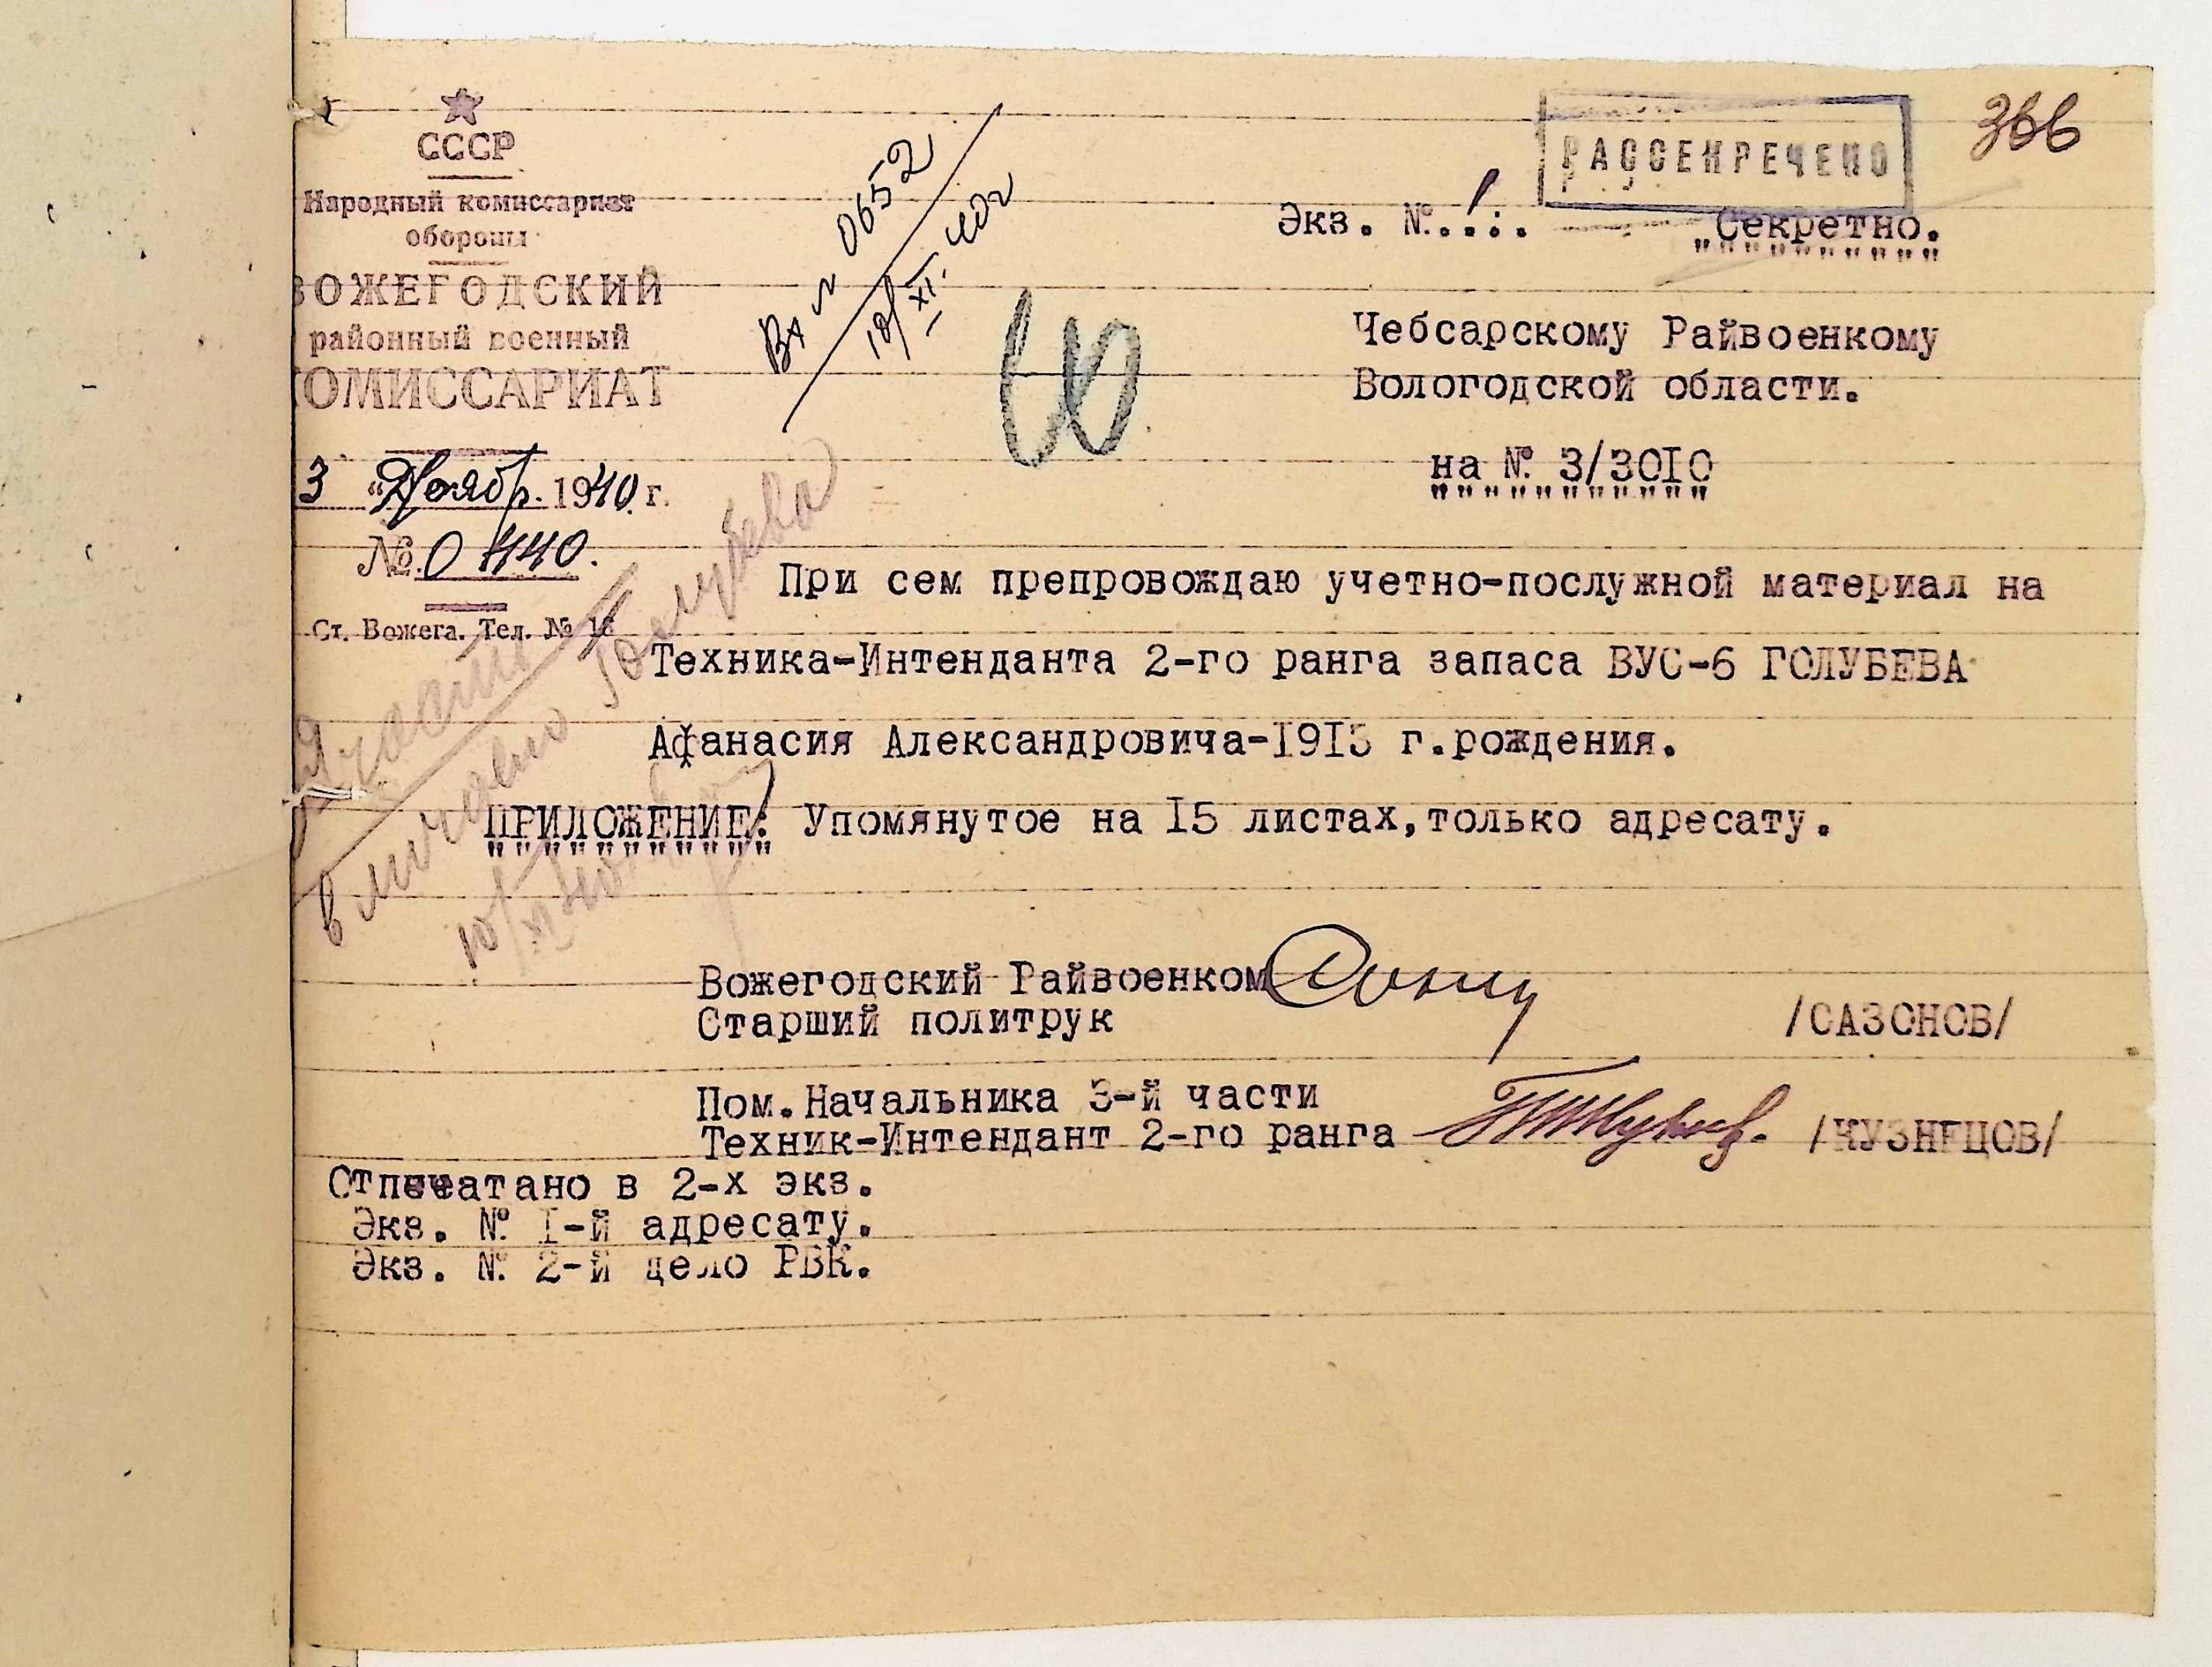 СССР
Народный комиссариат
обороны
ВОЖЕГОДСКИЙ
районный военный
КОМИССАРИАТ
3 "Ноябр. 1940 г.
№ 0440.
Ст. Вожега. Тел. № 18
Вх № 0652
10/XI. 40г
РАССЕКРЕЧЕНО
366
Экз. №.1.. "Секретно.
Чебсарскому Райвоенкому
Вологодской области.
на № 3/3010
При сем препровождаю учетно-послужной материал на
Техника-Интенданта 2-го ранга запаса ВУС-6 ГОЛУБЕВА
Афанасия Александровича-1913 г.рождения.
ПРИЛОЖЕНИЕ: Упомянутое на 15 листах,только адресату.
Голубева
10/XI
Вожегодский Райвоенком
Старший политрук /САЗОНОВ/
Пом.Начальника 3-й части
Техник-Интендант 2-го ранга /КУЗНЕЦОВ/
Отпечатано в 2-х экз.
Экз. № I-й адресату.
Экз. № 2-й дело РВК.